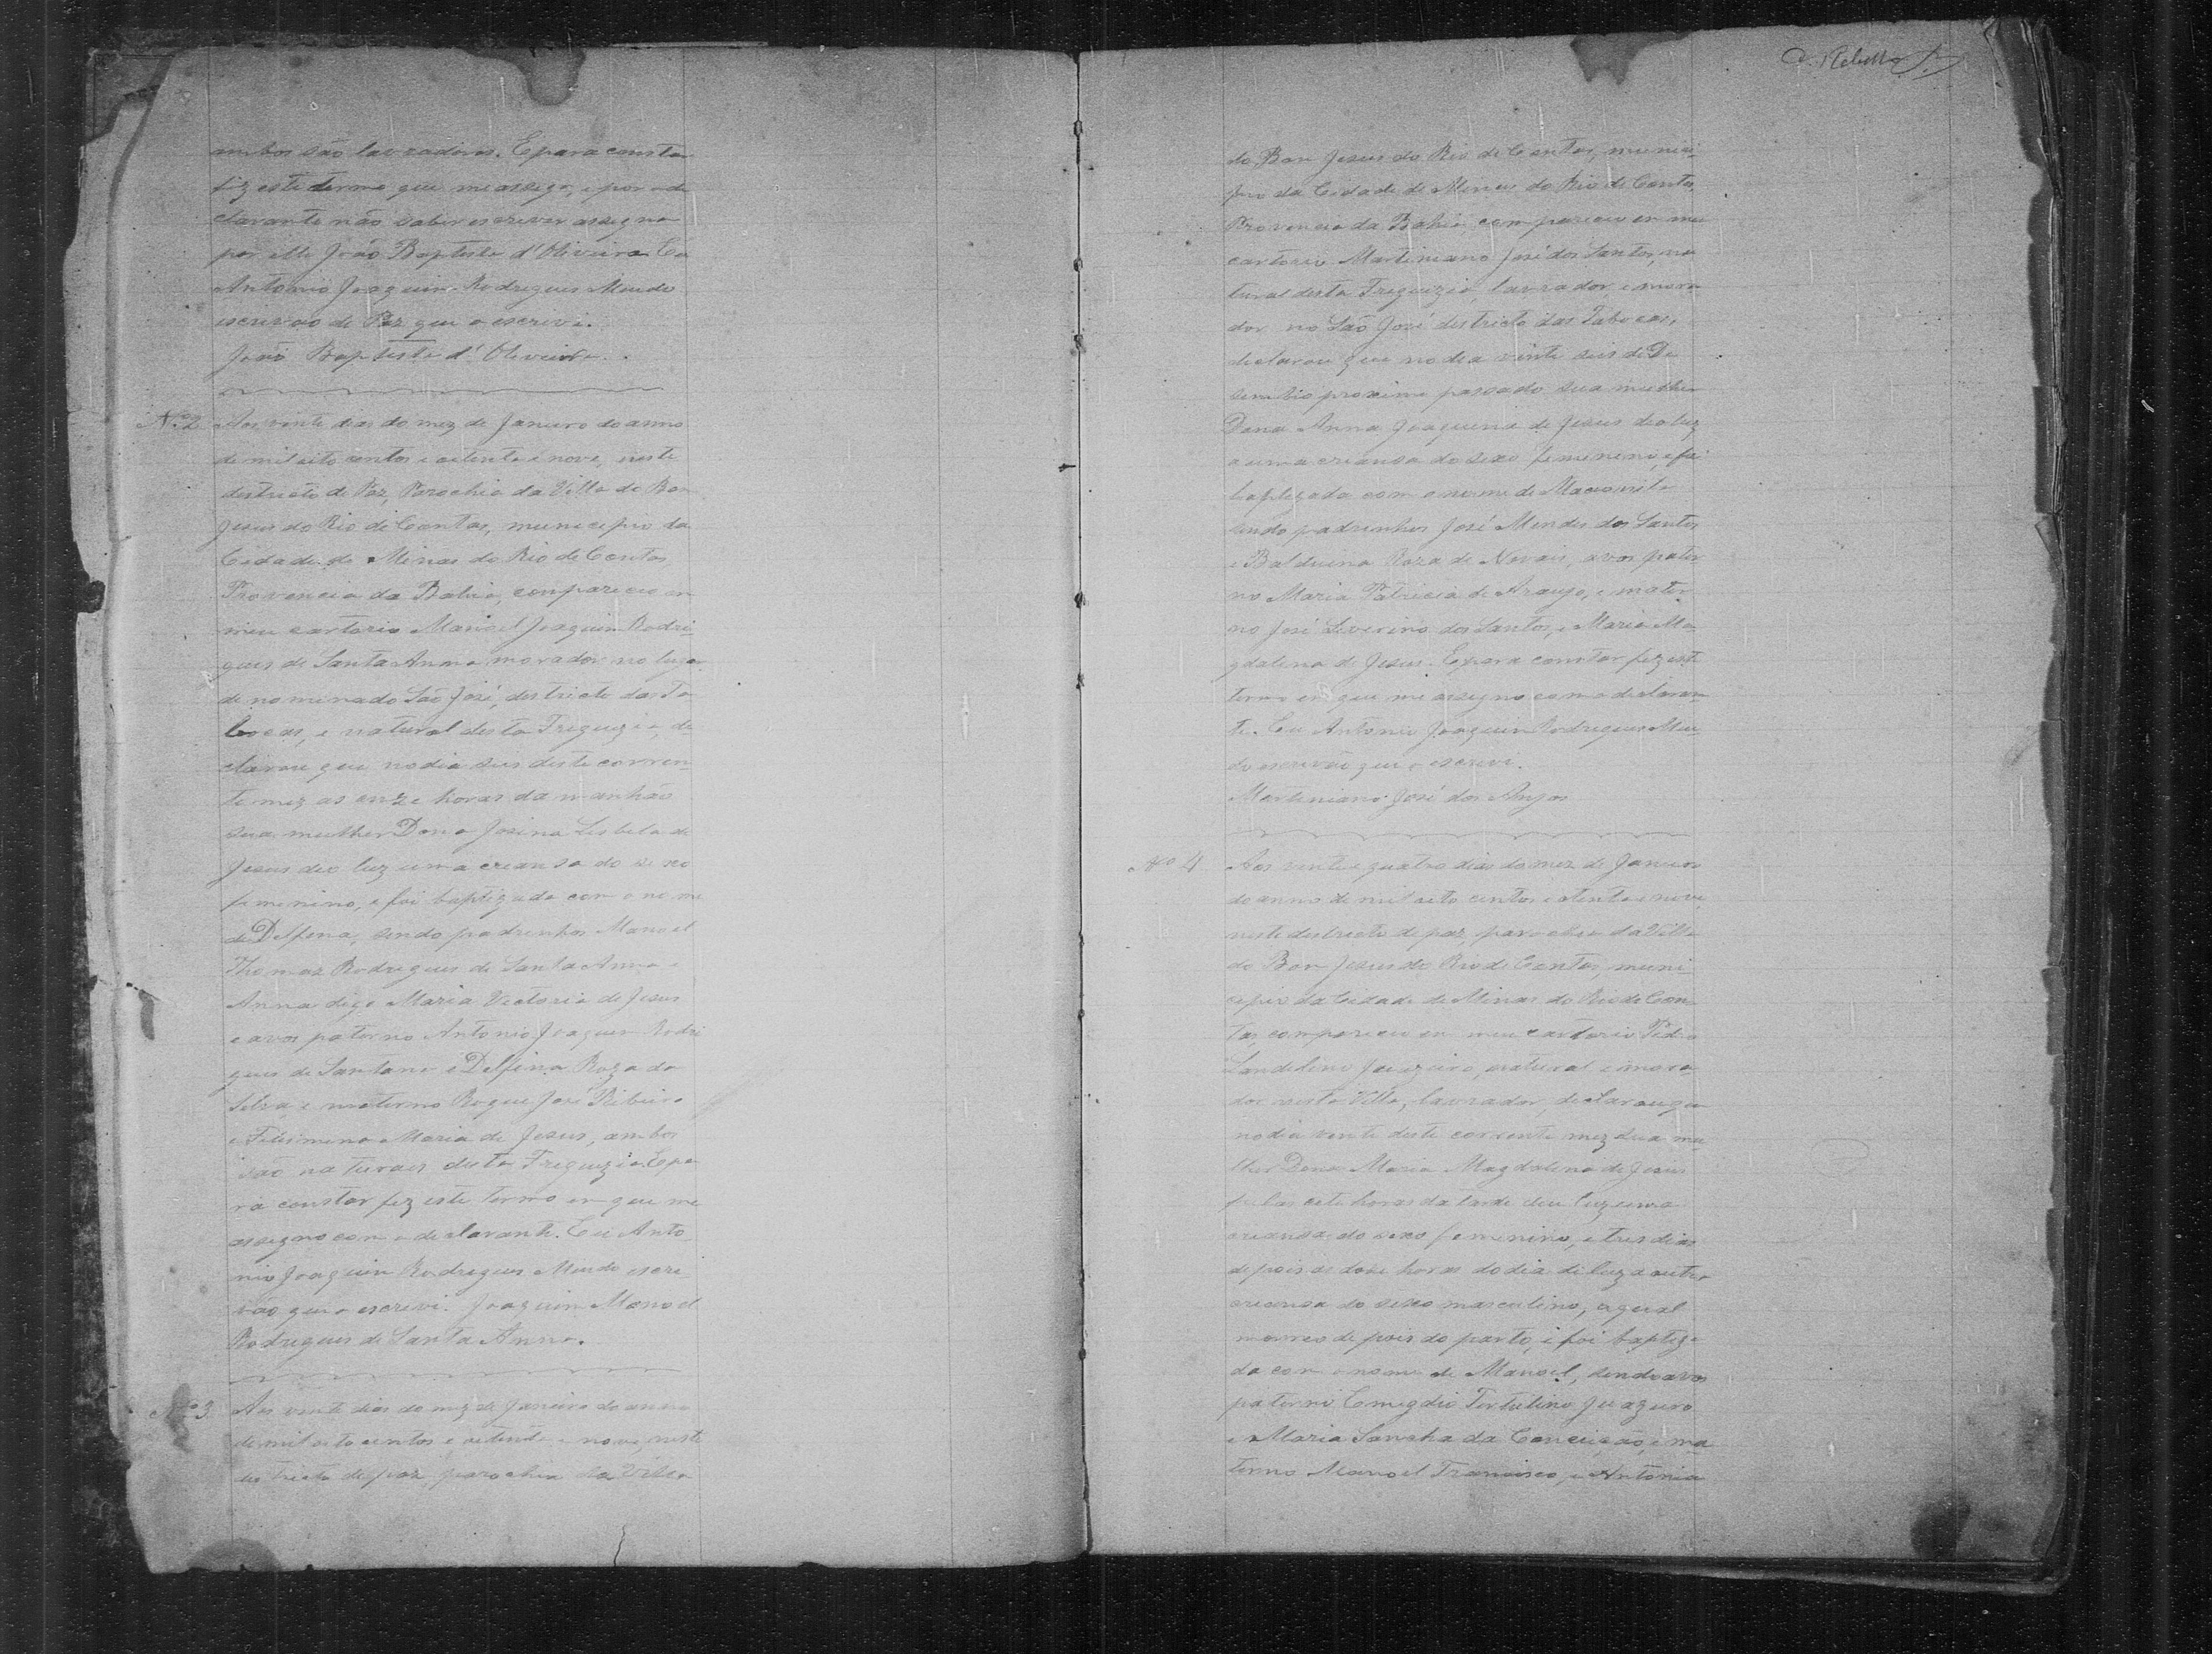 ambos são lavradores. E para constar
fiz este termo que me assigo, e por o de
clarante não saber escrever assigna
por elle João Baptista d'Oliveira Eu
Antonio Joaquim Rodrigues Mendo
escrivão de Paz que o escrivi.
João Baptista d'Oliveira.
Nº 2 Aos vinte dias do mez de Janeiro do anno
de mil oito centos e oitenta e nove, neste
destricto de Paz, Parochia da Villa do Bom
Jesus do Rio de Contas, municepio da
Cidade de Minas do Rio de Contas
Provencia da Bahia, compareceo em
meu cartorio Manoel Joaquim Rodri-
gues de Santa Anna morador no lugar
denomenado São José, destricto das Ta
bocas, e natural desta Freguezia, de
clarou que no dia seis deste corren-
te mez as onze horas da manhão
sua mulher Dona Josina Lisbela de
Jesus deo luz uma creansa do sexo
femenino, e foi baptizada com o nome
de Delfina, sendo padrinhos Manoel
Thomaz Rodrigues de Santa Anna e
Anna digo Maria Victoria de Jesus
e avos paterno Antonio Joaquim Rodri
gues de Santana e Delfina Roza da
Silva e materno Roque José Ribeiro
e Felismena Maria de Jesus, ambos
são naturaes desta Freguezia. E pa
ra constar fiz este termo em que me
assigno com o declarante. Eu Anto
nio Joaquim Rodrigues Mendo escri
vão que o escrivi. Joaquim Manoel
Rodrigues de Santa Anna.
Nº 3 Aos vinte dias do mez de Janeiro do anno
de mil oito centos e oitenta e nove, neste
destricto de paz, parochia da Villa
C. Rebello
do Bom Jesus do Rio de Contas, munici-
pio da Cidade de Minas do Rio de Contas,
Provencia da Bahia, compareceo em meu
cartorio Martiniano José dos Santos, na
tural desta Freguezia, lavrador, e mora
dor no São José destricto das Tabocas,
declarou que no dia vinte seis de De
sembro proximo passado sua mulher
Dona Anna Joaquina de Jesus deo luz
a uma creansa do sexo femenino, e foi
baptizada com o nome de
sendo padrinhos José Mendes dos Santos
e Balduina Roza de Novais, avos pater
no Maria Patricia de Araujo, e mater
no José Severino dos Santos, e Maria Ma-
gdalena de Jesus. E para constar fiz este
termo em que me assigno com o declaran-
te. Eu Antonio Joaquim Rodrigues Men
do escrivão que o escrivi.
Martiniano José dos Anjos
Nº 4 Aos vinte e quatro dias do mez de Janeiro
do anno de mil oito centos e oitenta e nove,
neste destricto de paz, parochia da Villa
do Bom Jesus do Rio de Contas, muni
cepio da Cidade de Minas do Rio de Con
tas, compareceu em meu cartorio Pedro
Landelino Juazeiro, natural e mora
dor nesta Villa, lavrador, declarou que
no dia vinte deste corrente mez sua mu
lher Dona Maria Magdalena de Jesus
pelas cete horas da tarde deu luz uma
creansa do sexo femenino, e tres dias
depois as doze horas do dia di luz a outra
creansa do sexo masculino, a qual
morreo depois do parto, e foi baptiza
da com o nome de Manoel, sendo avos
paterno Emegdio Tertulino Juazeiro
e Maria Sancha da Conceição, e ma
terno Manoel Francisco, e Antonia